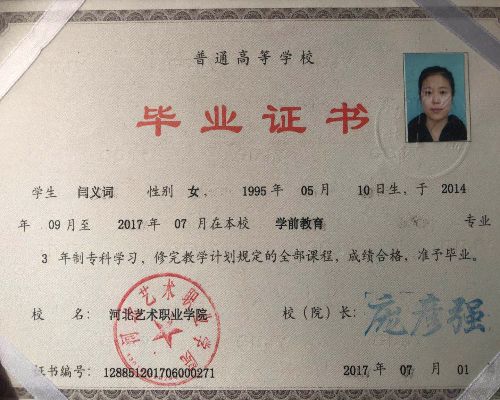 普通高等学校
毕业证书
学生 闫义词 性别 女，1995 年 05 月 10 日生，于 2014
年 09 月至 2017 年 07 月在本校 学前教育 专业
3 年制专科学习，修完教学计划规定的全部课程，成绩合格，准予毕业。
校 名： 河北艺术职业学院 校（院）长： 庞彦强
证书编号： 128851201706000271 2017 年 07 月 01
河北艺术职业学院